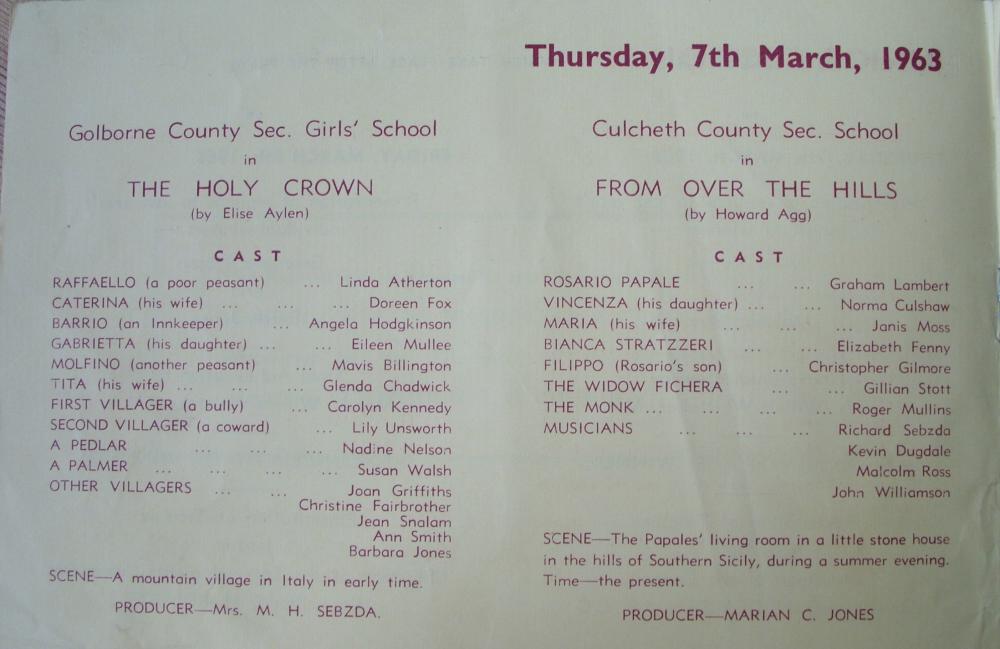 Thursday, 7th March, 1963
Golborne County Sec. Girls' School
in
THE HOLY CROWN
(by Elise Aylen)
CAST
RAFFAELLO (a poor peasant) ... Linda Atherton
CATERINA (his wife) ... ... ... Doreen Fox
BARRIO (an Innkeeper) ... Angela Hodgkinson
GABRIETTA (his daughter) ... ... Eileen Mullee
MOLFINO (another peasant) ... Mavis Billington
TITA (his wife) ... ... ... Glenda Chadwick
FIRST VILLAGER (a bully) ... Carolyn Kennedy
SECOND VILLAGER (a coward) ... Lily Unsworth
A PEDLAR ... ... ... Nadine Nelson
A PALMER ... ... ... ... Susan Walsh
OTHER VILLAGERS ... ... Joan Griffiths
Christine Fairbrother
Jean Snalam
Ann Smith
Barbara Jones
SCENE—A mountain village in Italy in early time.
PRODUCER—Mrs. M. H. SEBZDA.
Culcheth County Sec. School
in
FROM OVER THE HILLS
(by Howard Agg)
CAST
ROSARIO PAPALE ... ... Graham Lambert
VINCENZA (his daughter) ... ... Norma Culshaw
MARIA (his wife) ... ... ... Janis Moss
BIANCA STRATZZERI ... ... Elizabeth Fenny
FILIPPO (Rosario's son) ... Christopher Gilmore
THE WIDOW FICHERA ... ... Gillian Stott
THE MONK ... ... ... ... Roger Mullins
MUSICIANS ... ... ... Richard Sebzda
Kevin Dugdale
Malcolm Ross
John Williamson
SCENE—The Papales' living room in a little stone house
in the hills of Southern Sicily, during a summer evening.
Time—the present.
PRODUCER—MARIAN C. JONES